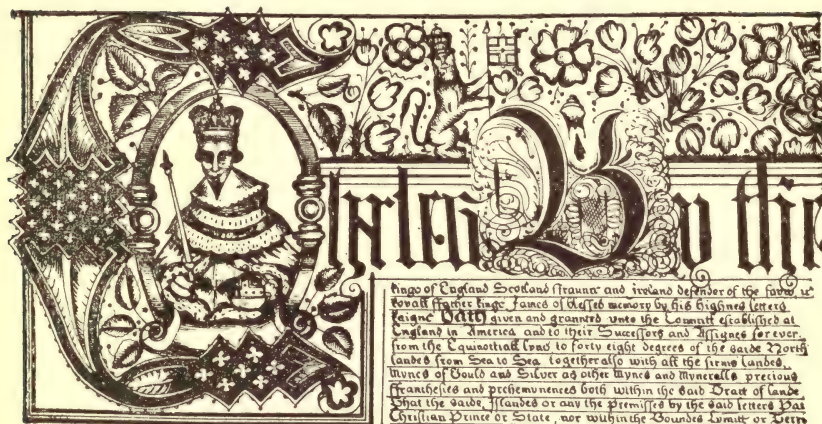 Charles By the
kinge of England Scotland ffraunce and ireland defender of the fayth &c
royall ffather kinge James of blessed memory by his highnes letters
raigne Hath given and graunted vnto the Councill established at
England in America and to their Successors and Assignes for ever.
from the Equinoctiall lyne to forty eight degrees of the saide North
landes from Sea to Sea together also with all the firme landes,
Mynes of Gould and Silver as other Mynes and Myneralls precious
ffranchesies and preheminences both within the said Tract of lande
That the saide Islandes or any the premisses by the said letters Pat
Christian Prince or State, nor within the Boundes Lymitt or Terri